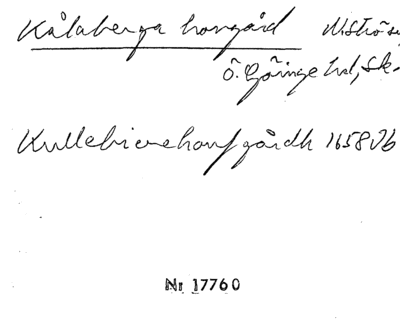 Kålaberga horngård N.Strö s
Ö. Göinge hd, Sk.
Kullebierehorsgårdh 1658 Jb
Nr 17760